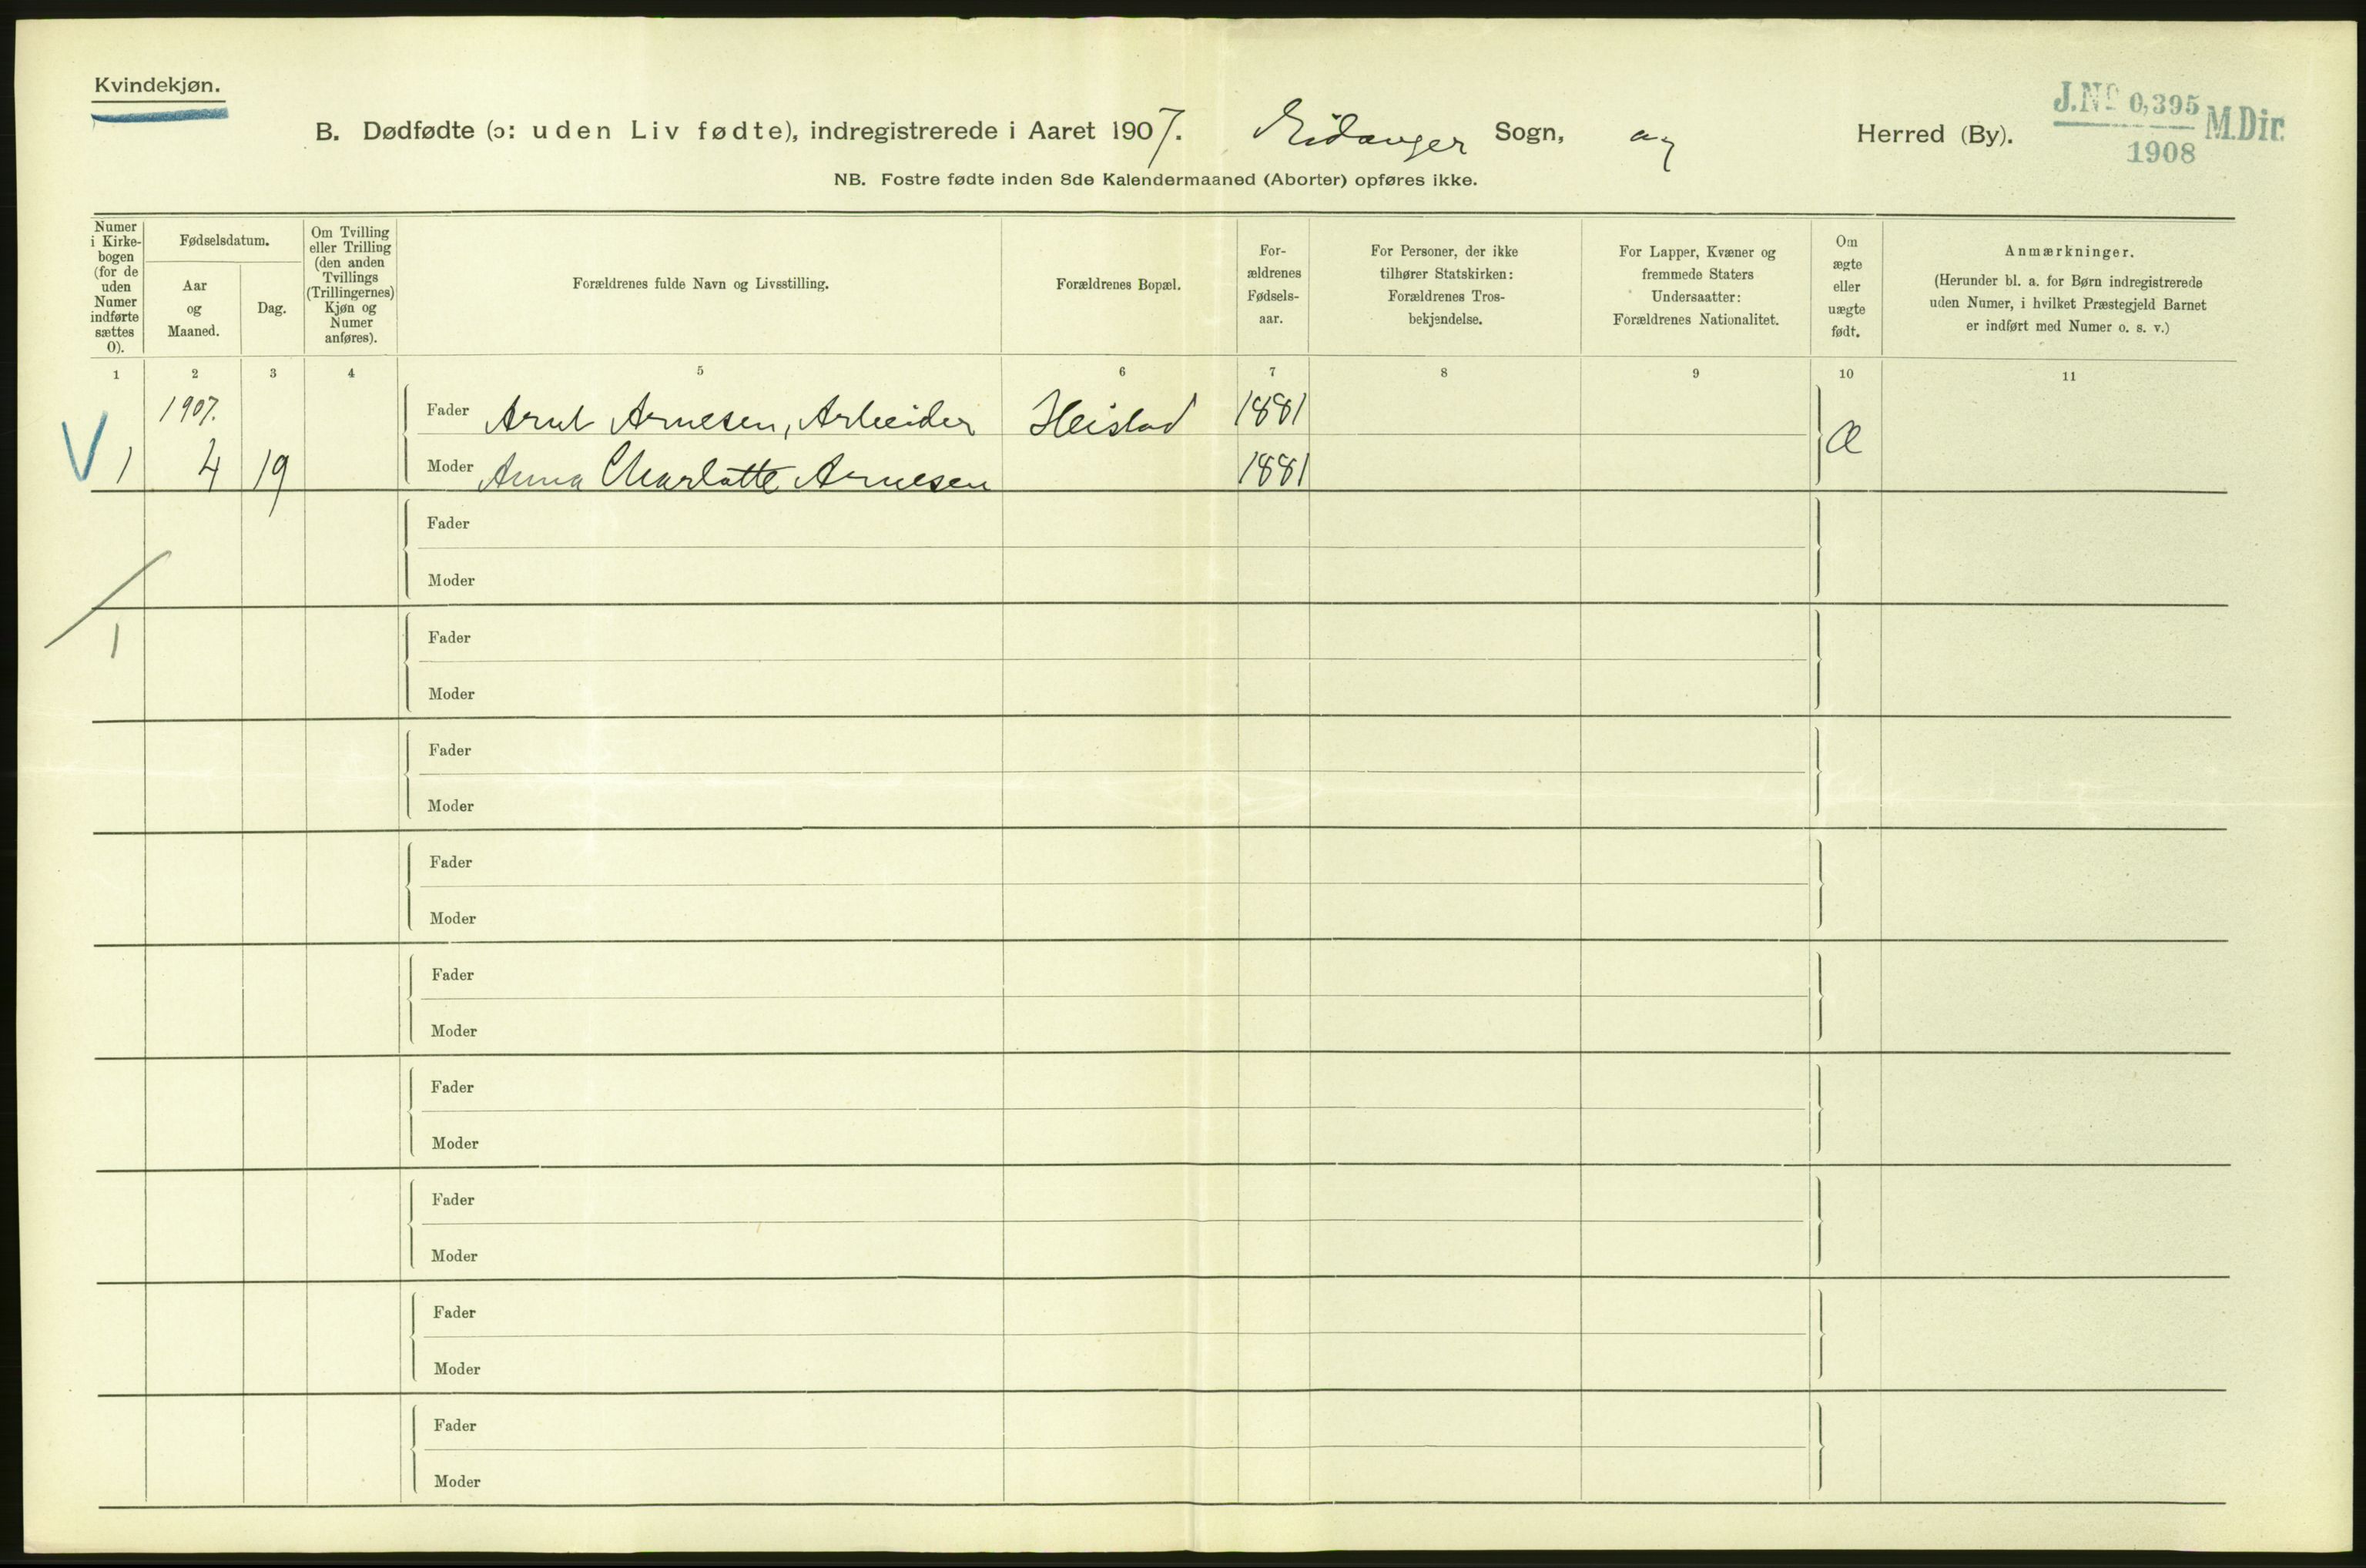 Kvindekjøn.
B. Dødfødte (ɔ: uden Liv fødte), indregistrerede i Aaret 1907. Eidanger Sogn, og Herred (By).
J.No 0,395 M.Dir.
1908
NB. Fostre fødte inden 8de Kalendermaaned (Aborter) opføres ikke.
Numer i Kirkebogen (for de uden Numer indførte sættes 0).
Fødselsdatum.
Aar og Maaned.
Dag.
Om Tvilling eller Trilling (den anden Tvillings (Trillingernes) Kjøn og Numer anføres).
Forældrenes fulde Navn og Livsstilling.
Forældrenes Bopæl.
For-ældrenes Fødsels-aar.
For Personer, der ikke tilhører Statskirken: Forældrenes Tros-bekjendelse.
For Lapper, Kvæner og fremmede Staters Undersaatter: Forældrenes Nationalitet.
Om ægte eller uægte født.
Anmærkninger.
(Herunder bl. a. for Børn indregistrerede uden Numer, i hvilket Præstegjeld Barnet er indført med Numer o. s. v.)
1 2 3 4 5 6 7 8 9 10 11
1907.
Fader Arnt Arnesen, Arbeider Heistad 1881
V 1 4 19 Moder Anna Charlotte Arnesen 1881 Æ
Fader
Moder
1
Fader
Moder
Fader
Moder
Fader
Moder
Fader
Moder
Fader
Moder
Fader
Moder
Fader
Moder
Fader
Moder